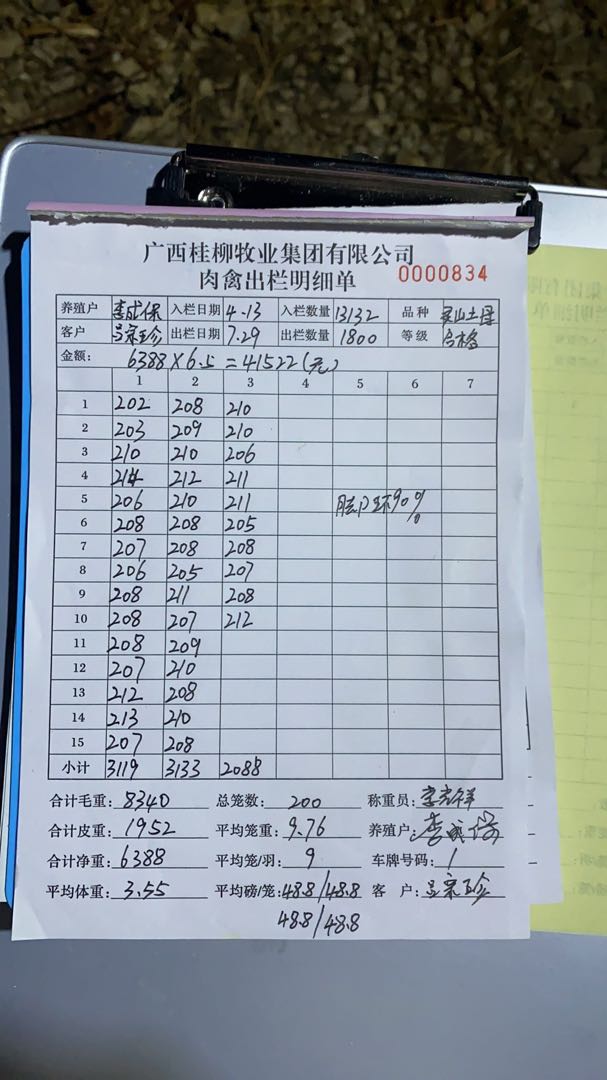 广西桂柳牧业集团有限公司
肉禽出栏明细单 0000834
养殖户 李成保 入栏日期 4.13 入栏数量 13132 品种 灵山土母
客户 吕宗珍 出栏日期 7.29 出栏数量 1800 等级 合格
金额: 6388×6.5=41522(元)
1 2 3 4 5 6 7
1 202 208 210
2 203 209 210
3 210 210 206
4 214 212 211
5 206 210 211 脱卫环90%
6 208 208 205
7 207 208 208
8 206 205 207
9 208 211 208
10 208 207 212
11 208 209
12 207 210
13 212 208
14 213 210
15 207 208
小计 3119 3133 2088
合计毛重: 8340 总笼数: 200 称重员:
合计皮重: 1952 平均笼重: 9.76 养殖户: 李成保
合计净重: 6388 平均笼/羽: 9 车牌号码: 1
平均体重: 3.55 平均磅/笼: 48.8/48.8 客户: 吕宗珍
48.8/48.8